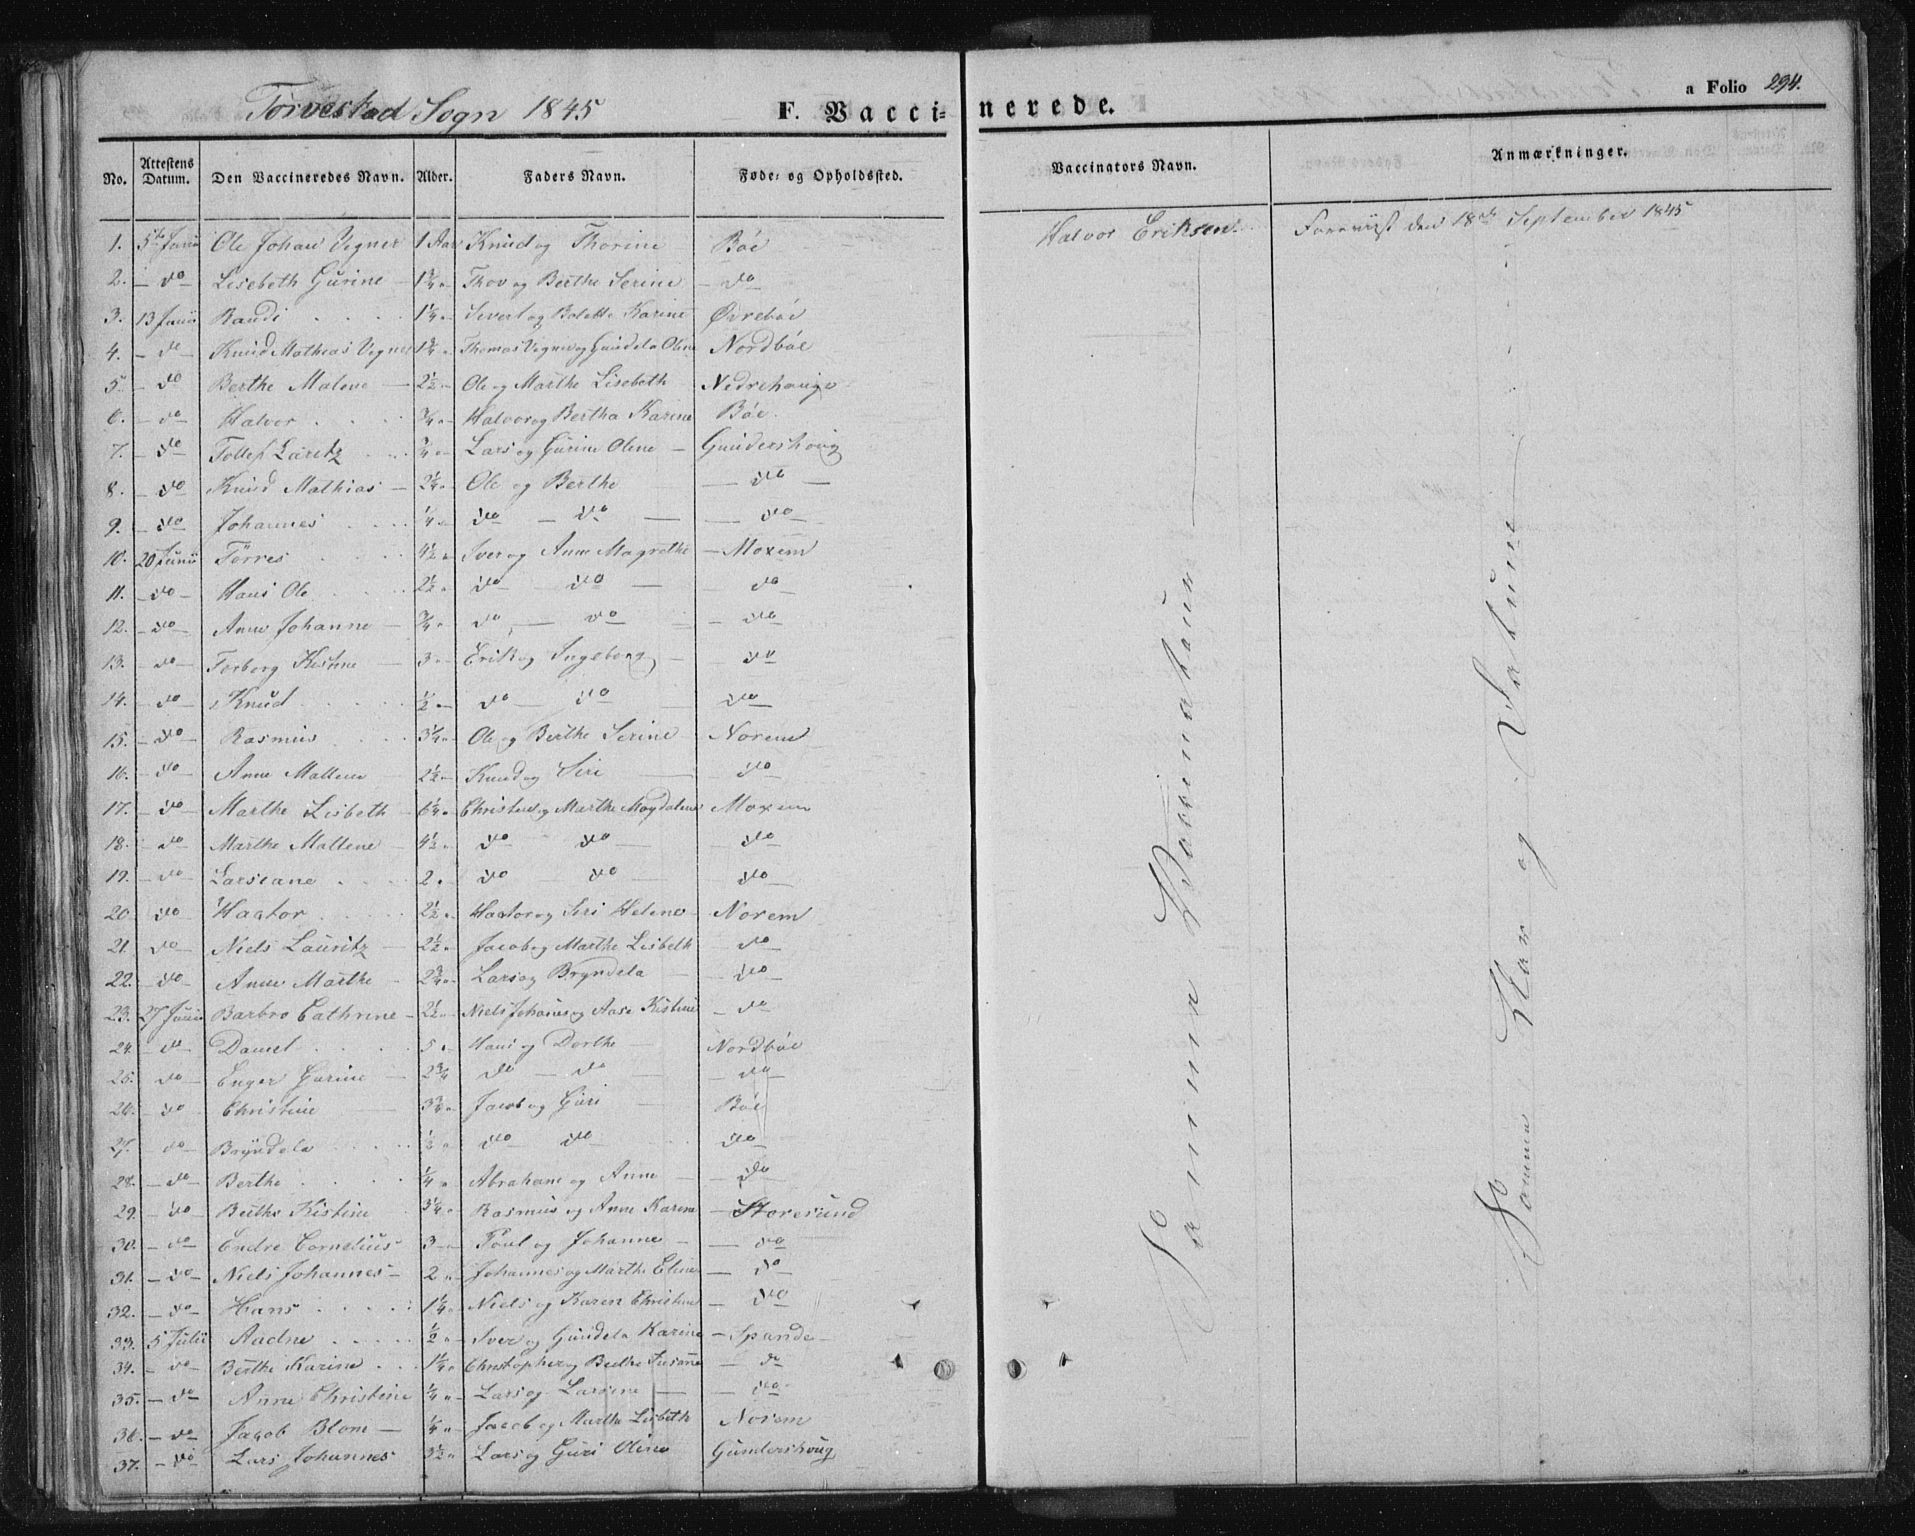 Torvestad Sogn 1845
F. Vacci-
nerede.
a Folio 294.
No. Attestens Datum. Den Vaccineredes Navn. Alder. Faders Navn. Føde- og Opholdssted. Vaccinators Navn. Anmærkninger.
1. 5te Junii Ole Johan Vegner 1 Aar Knud og Thorine Böe Halvor Eriksen. Foreviist den 18de September 1845
2. - do - Lisebeth Gurine - 1¾ " Thov og Berthe Serine - do -
3. 13 Junii Randi 1¼ " Sivert og Bolette Karine Øvreböe
4. - do - Knud Mathias Vegner 1¾ " Thomas Vegner og Gundela Olene Nordböe
5 - do Berthe Malene - 2½ - Ole og Marthe Lisebeth Nedrehauge
6. - do - Halvor ¾ " Halvor og Bertha Karine Böe.
7. - do Tollef Lauritz ¾ " Lars og Gurine Olene - Gundershoug
8. - do Knud Mathias - 2¼ " Ole og Berthe - do -
9. - do - Johannes ¼ " do - do - - do -
10. 20 Junii Törres 4½ " Iver og Anne Magrethe - Moxem
11. - do - Hans Ole 2½ " do - do - do
12. - do - Anne Johanne - ¾ " do - do - do
13. - do - Torborg Kistine - 3 " Erik og Ingeborg - do
14. - do Knud ½ - do - do - do
15. - do Rasmus 3¼ " Ole og Berthe Serine Norem
16. - do Anne Mallene - 2½ " Knud og Siri - do
17. - do Marthe Lisbeth - 6¼ " Christen og Marthe Magdalene Moxem
18. - do Marthe Mallene - 4½ " do do - do
19. - do Larsiane 2 " do - do - do
20 do Hactor 2½ " Hactor og Siri Helene - Norem
21. do - Niels Lauritz - 2½ " Jacob og Marthe Lisbeth - do -
22. - do - Anne Marthe - 2¾ " Lars og Bryndela - - do -
23. 27 Junii Barbro Cathrine - 2½ " Niels Johanes og Aase Kistine - do
24. - do Daniel 5 " Hans og Dorthe - Nordböe
25. do - Enger Gurine - 2¾ do - do - - do -
26. - do - Christine - 3¾ " Jacob og Guri - Böe
27. - do - Bryndela ½ " do do - do
28. - do - Berthe ¼ " Abraham og Anne - do
29. - do Berthe Kistine 3¼ " Rasmus og Anne Karine - Storesund
30. - do Endre Cornelius 3 - " Poul og Johanne - - do
31. - do - Niels Johannes - 2 " Johannes og Marthe Eline - do
32. - do - Hans 1¼ " Niels og Karen Christine - do
33. 5 Julii Aadne ½ " Iver og Gundela Karine - Spande -
34. - do - Berthe Karine 1¼ " Christopher og Berthe Susanne - do
35. - do Anne Christine ¼ " Lars og Larsine - - do -
36. - do - Jacob Blom - ¼ " Jacob og Marthe Lisbeth Norem
37. - do - Lars Johannes 3½ " Lars og Guri Oline Gundershoug
Samme Vaccinateur
Samme Aar og Datum